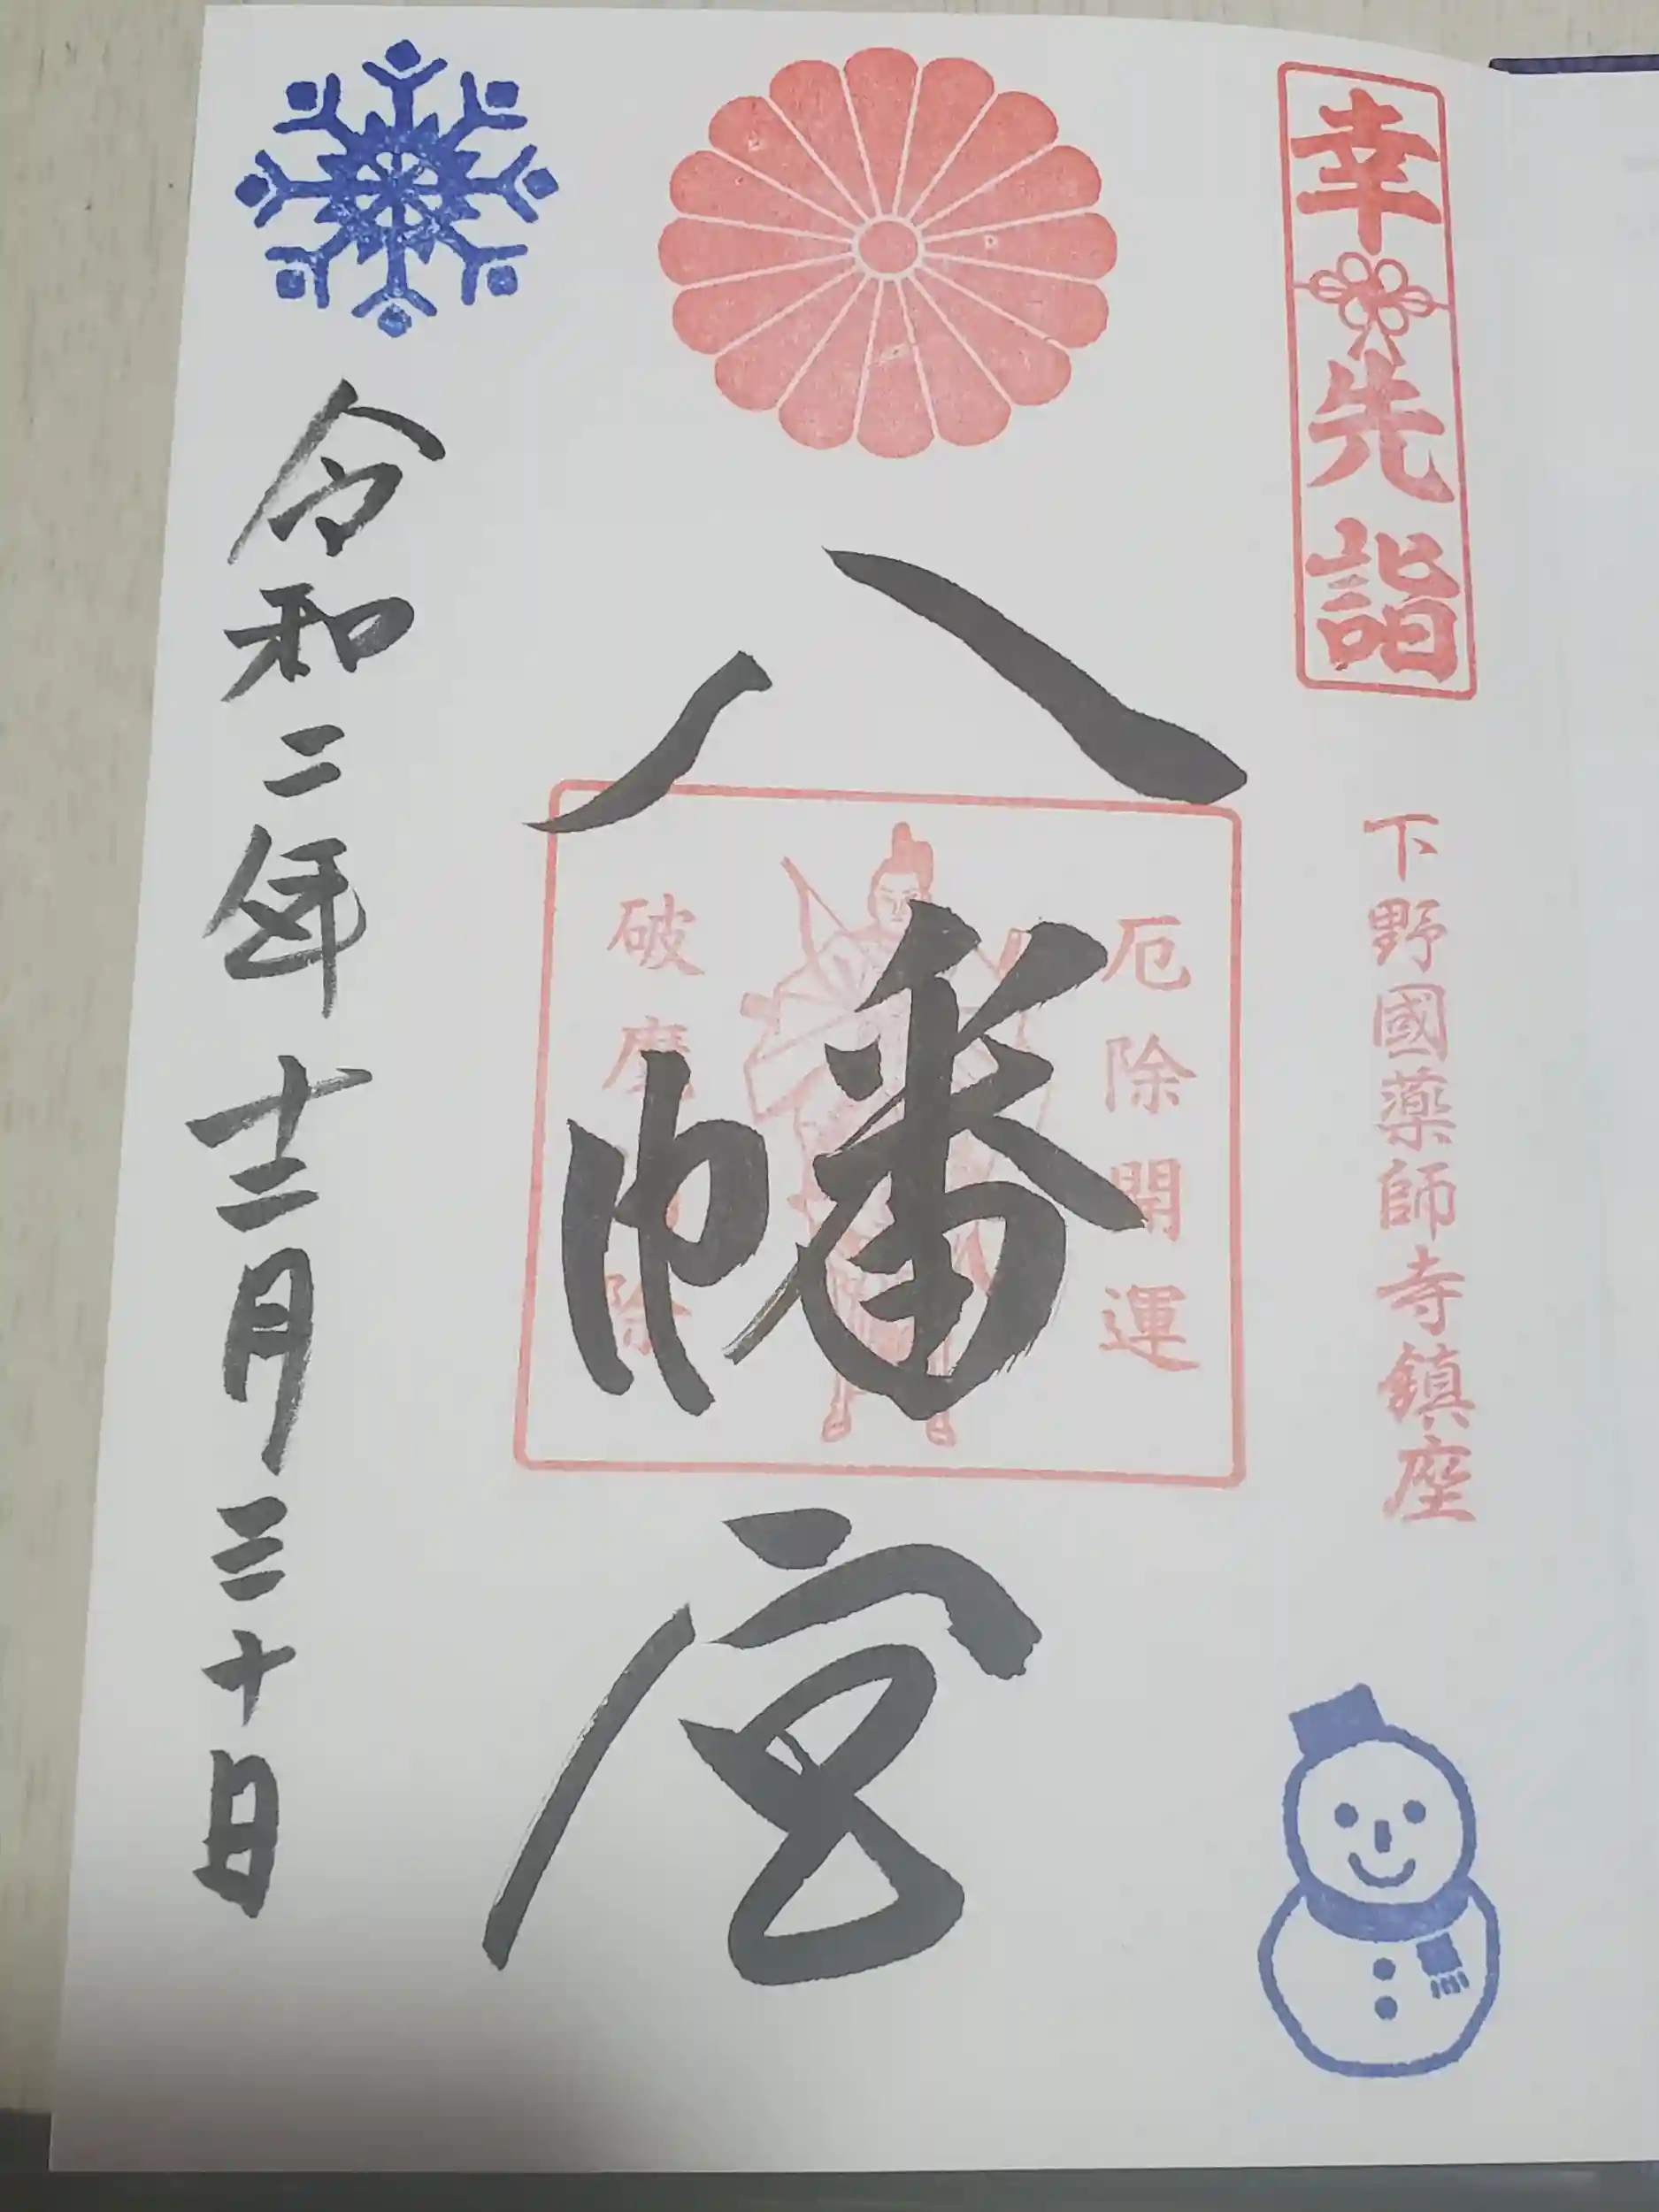 幸先詣
下野國薬師寺鎮座
八幡宮
厄除開運
破魔
除
令和二年十二月三十日